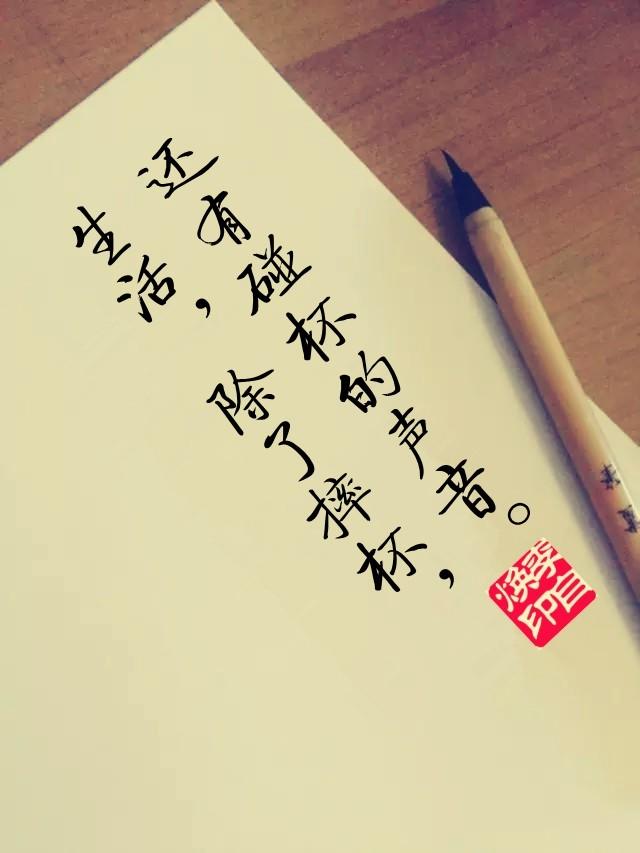 生活，除了摔杯，
还有碰杯的声音。